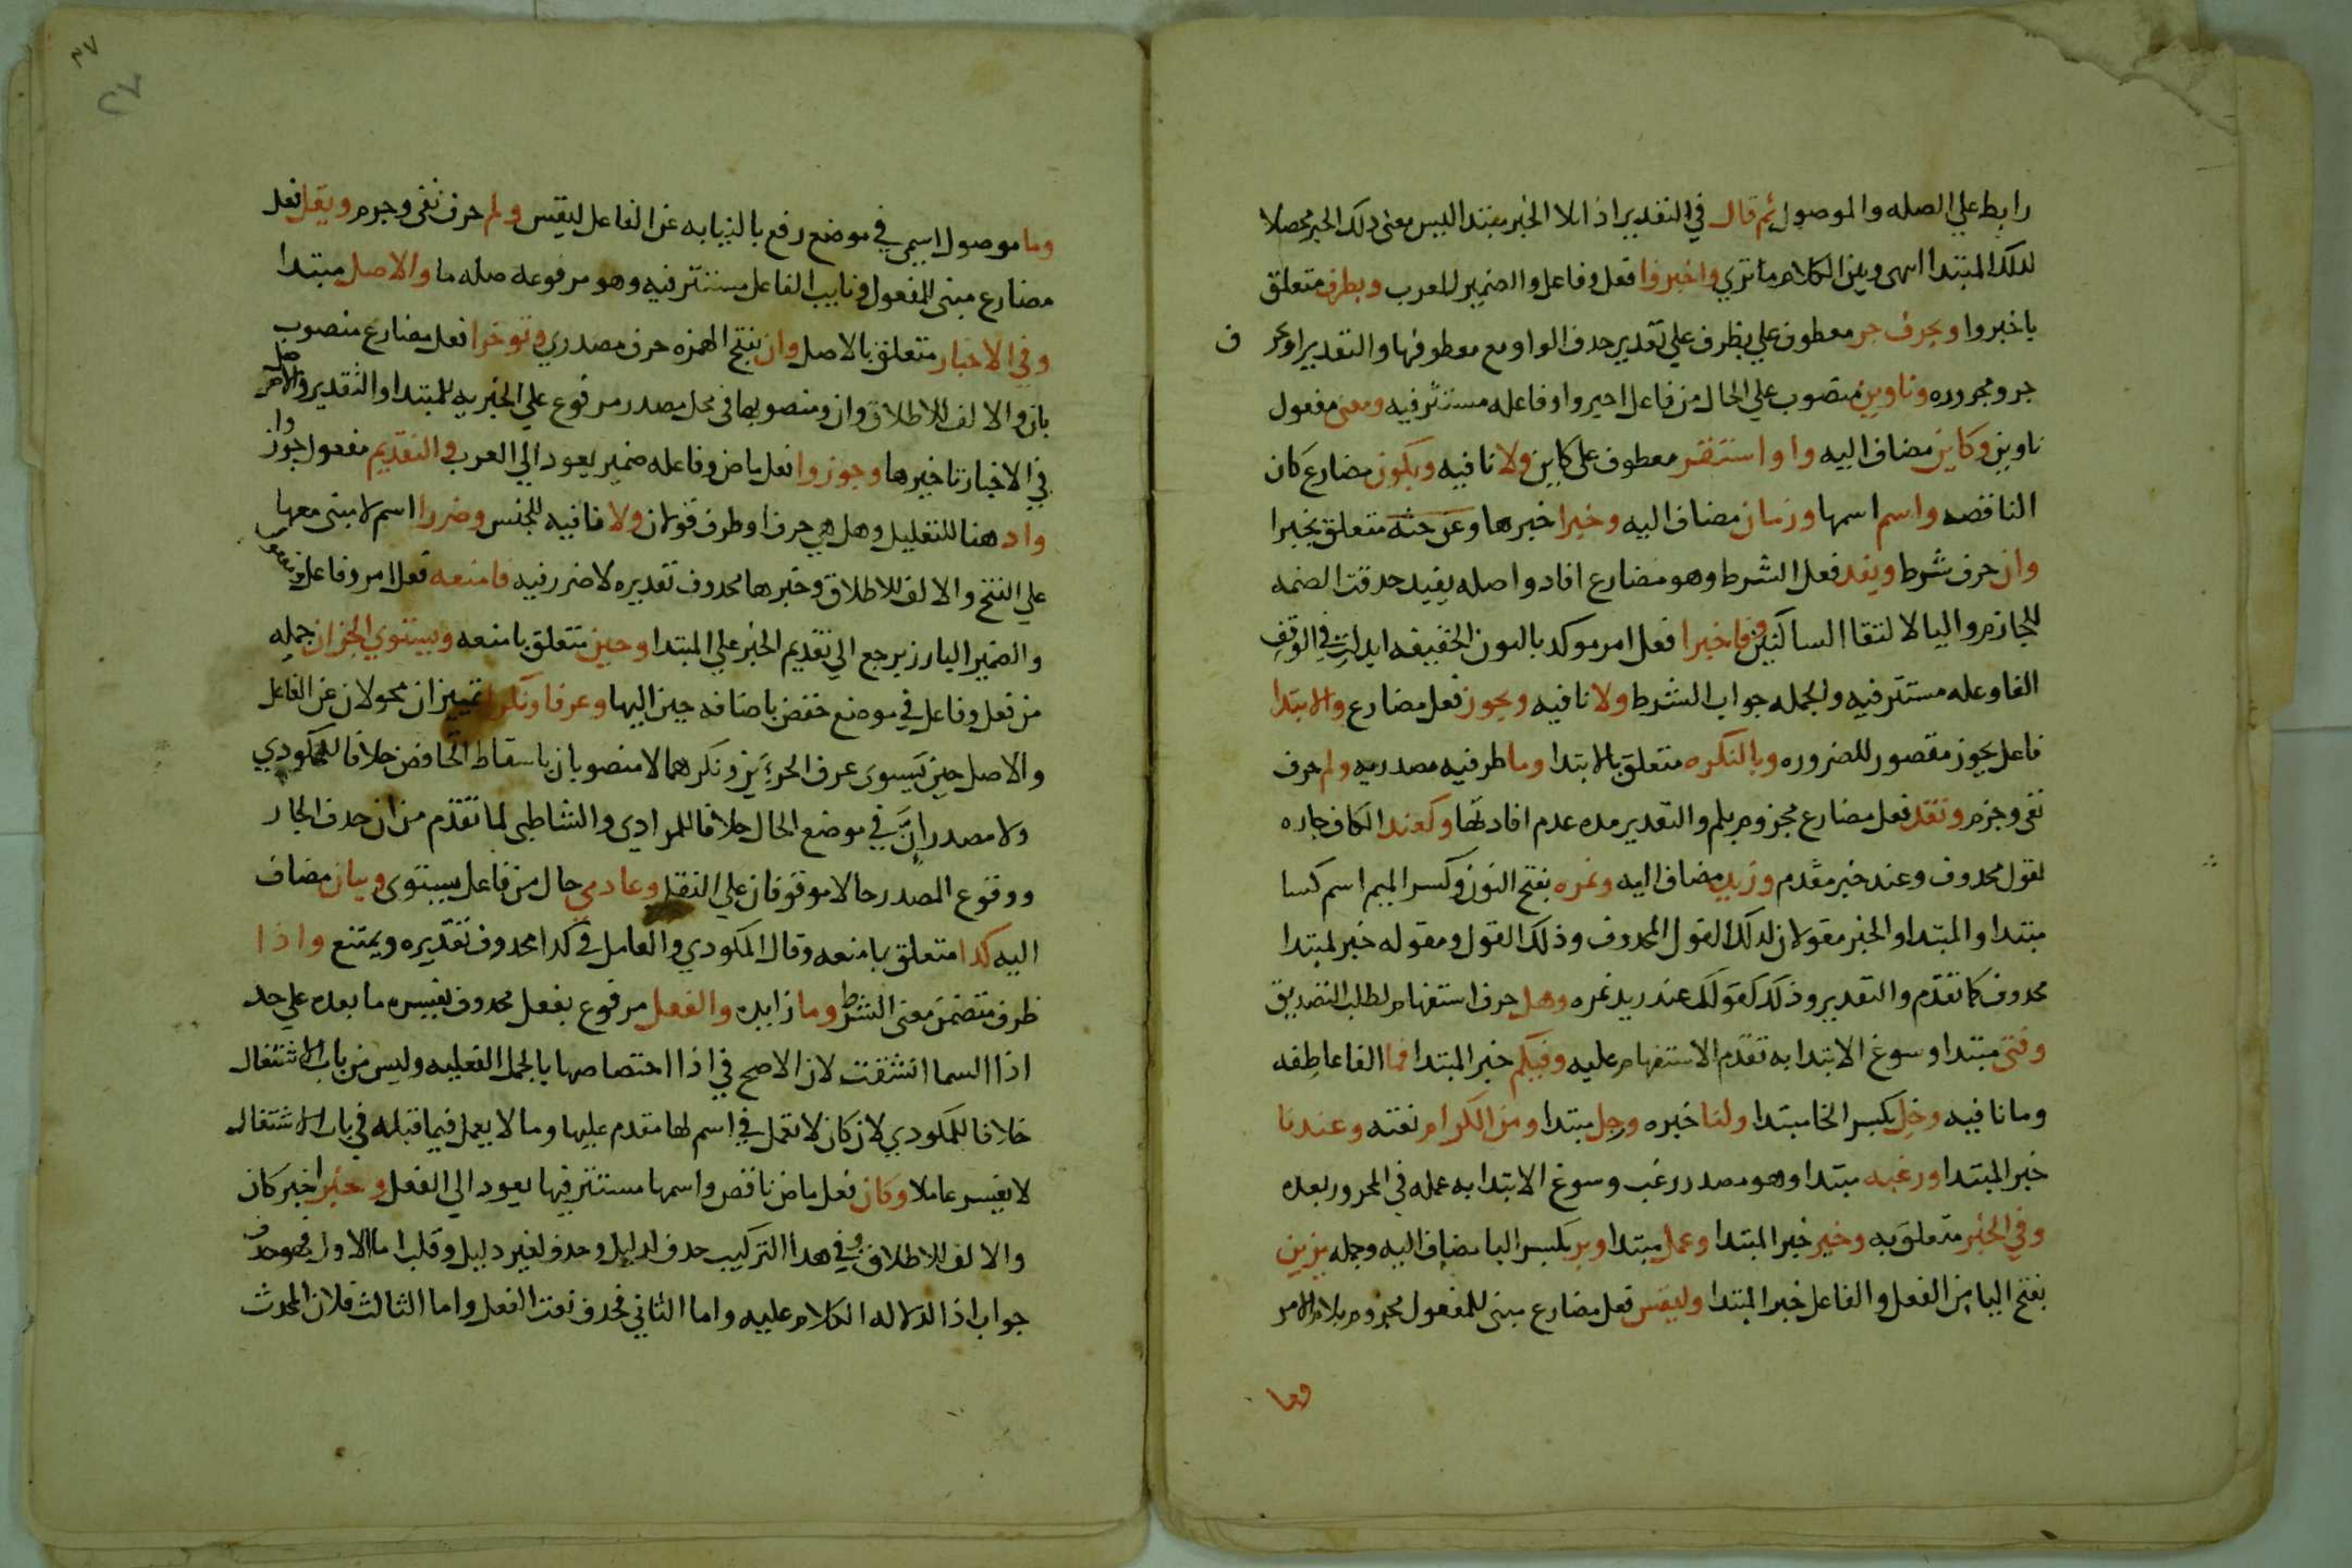 رابط علي الصله والموصول ثم قال في التقدير اذا تلا الخبر مبتدا ليس معنى ذلك الخبر محصلا
لذلك المبتدا انتهى وبين الكلام ما تري واخبروا فعل وفاعل والضمير للعرب وبظرف متعلق
باخبروا وبحرف جر معطوف علي بظرف علي تقدير حذف الواو مع معطوفها والتقدير او بحرف
جر ومجروره وناوين منصوب علي الحال من فاعل اخبروا وفاعله مستتر فيه ومعنى مفعول
ناوين وكاين مضاف اليه واو استقر معطوف على كاين ولا نافيه ويكون مضارع كان
الناقصه واسم اسمها وزمان مضاف اليه وخبرا خبرها وعن جثه متعلق بخبرا
وان حرف شرط ويفد فعل الشرط وهو مضارع افاد واصله يفيد حذفت الضمه
للجازم واليا لالتقا الساكنين وفاخبرا فعل امر موكد بالنون الخفيفه ابدلت في الوقف
الفا وفاعله مستتر فيه والجمله جواب الشرط ولا نافيه ويجوز فعل مضارع والابتدا
فاعل يجوز مقصور للضروره وبالنكره متعلق بالابتدا وما ظرفيه مصدريه ولم حرف
نفي وجزم وتفد فعل مضارع مجزوم بلم والتقدير مده عدم افادتها وكعند الكاف جاره
لقول محذوف وعند خبر مقدم وزيد مضاف اليه ونمره بفتح النون وكسر الميم اسم كسا
مبتدا والمبتدا والخبر مقولان لذلك القول المحذوف وذلك القول ومقوله خبر لمبتدا
محذوف كما تقدم والتقدير وذلك كقولك عند زيد نمره وهل حرف استفهام لطلب التصديق
وفتى مبتدا وسوغ الابتدا به تقدم الاستفهام عليه وفيكم خبر المبتدا فما الفا عاطفه
وما نافيه وخل بكسر الخا مبتدا ولنا خبره ورجل مبتدا ومن الكرام نعته وعندنا
خبر المبتدا ورغبه مبتدا وهو مصدر رغب وسوغ الابتدا به عمله في المجرور بعده
وفي الخير متعلق به وخير خبر المبتدا وعمل مبتدا وبر بكسر البا مضاف اليه وجمله يزين
بفتح اليا من الفعل والفاعل خبر المبتدا وليقس فعل مضارع مبنى للمفعول مجزوم بلام الامر
وما
٢٧
٢٧
وما موصول اسمي في موضع رفع بالنيابه عن الفاعل ليقس ولم حرف نفى وجزم ويقل فعل
مضارع مبنى للمفعول ونايب الفاعل مستتر فيه وهو مرفوعه صله ما والاصل مبتدا
وفي الاخبار متعلق بالاصل وان بفتح الهمزه حرف مصدري وتوخرا فعل مضارع منصوب
بان والالف للاطلاق وان ومنصوبها في محل مصدر مرفوع علي الخبريه للمبتدا والتقدير والاصل
في الاخبار تاخيرها وجوزوا فعل ماض وفاعله ضمير يعود الي العرب والتقديم مفعول جوزوا
واذ هنا للتعليل وهل هي حرف او ظرف قولان ولا نافيه للجنس وضررا اسم لا مبنى معها
علي الفتح والالف للاطلاق وخبرها محذوف تقديره لا ضرر فيه فامنعه فعل امر وفاعل ومفعول
والضمير البارز يرجع الي تقديم الخبر علي المبتدا وحين متعلق بامنعه ويستوي الجزان جمله
من فعل وفاعل في موضع خفض باضافه حين اليها وعرفا ونكرا تمييزان محولان عن الفاعل
والاصل حين يستوى عرف الجزءين ونكرهما لا منصوبان باسقاط الخافض خلافا للمكودي
ولا مصدران في موضع الحال خلافا للمرادي والشاطبي لما تقدم من ان حذف الجار
ووقوع المصدر حالا موقوفان علي النقل وعادمي حال من فاعل يستوى وبيان مضاف
اليه كذا متعلق بامنعه وقال المكودي والعامل في كذا محذوف تقديره ويمتنع واذا
ظرف متضمن معنى الشرط وما زايده والفعل مرفوع بفعل محذوف يفسره ما بعده علي حد
اذا السما انشقت لان الاصح في اذا اختصاصها بالجمل الفعليه وليس من باب الاشتغال
خلافا للمكودي لان كان لا تعمل في اسم لها متقدم عليها وما لا يعمل فيما قبله في باب الاشتغال
لا يفسر عاملا وكان فعل ماض ناقص واسمها مستتر فيها يعود الي الفعل وخبرا خبر كان
والالف للاطلاق وفي هذا التركيب حذف لدليل وحذف لغير دليل وقلب اما الاول فهو حذف
جواب اذا لدلاله الكلام عليه واما الثاني فحذف نعت الفعل واما الثالث فلان المحدث